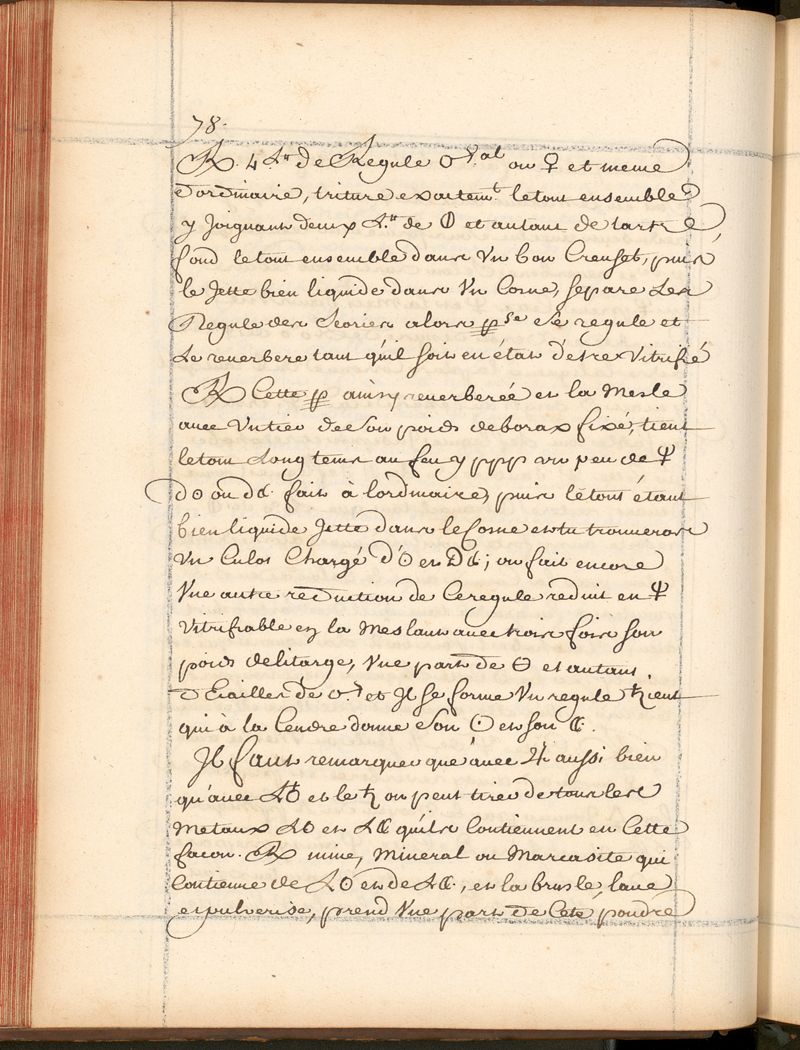 78.
℞. 4 L.rs de Regule ou ♀ et meme
dordinaire, triture exactem.t letout ensemble
y Joignant deux L.rs de 🜕 et autant de tartre
fond letout ensemble dans Vn bon Creuset, puis
le Jette bien liquide dans Vn Cosne, separe Les
Regule des Scories alors pp.se Ce regule et
Le reuerbere tant qu'il soit en état d'etre Vitrifié
℞ Cette pp ainsy reuerberée et la Mesle
auec Vn tier de son poids deborax fixé, tient
letout Long tems au feu y ppp vn peu de 🜍
d☉ ou d☾. fait à lordinaire, puis le tout étant
bien liquide Jette dans le Cosne et tu trouueras
Vn Culot Chargé d'☉ et D☾; on fait encore
Vne autre reduction de Ceregule reduit en
Vitrifiable en la Meslant auec trois fois son
poids delitarge, Vne part de 🜔 et autant
d'Ecailles de et Jl se forme Vn regule ♄ient
qui à la Cendre donne son ☉ et son ☾.
Jl faut remarquer que auec ♃ aussi bien
qu'auec et le ♄ on peut tirer de tous les
Metaux L☉ et L☾ quils Contiennent en Cette
façon. ℞ mine, Mineral ou Marcasite qui
Contienne de L☉ et de L☾., et la brusle, laue
et pulverise, prend Vne part de Cete poudre